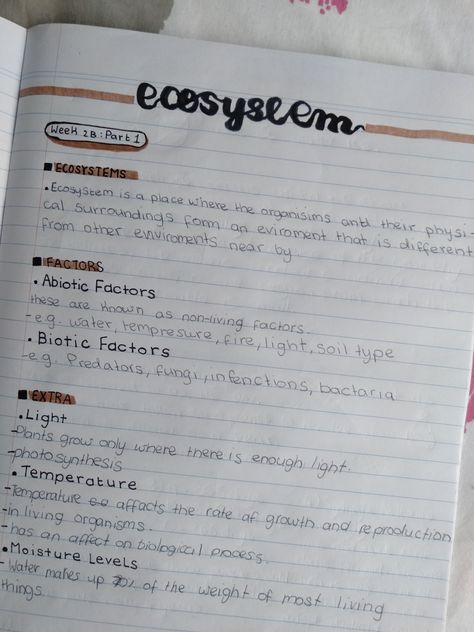 ecosystem
Week 2B: Part 1
ECOSYSTEMS
• Ecosystem is a place where the organisims and their physi-
cal surroundings form an eviroment that is different
from other enviroments near by.
FACTORS
• Abiotic Factors
these are known as non-living factors.
-e.g. water, tempresure, fire, light, soil type
• Biotic Factors
-e.g. Predators, fungi, infenctions, bactaria
EXTRA
• Light
-Plants grow only where there is enough light.
-photosynthesis
• Temperature
-Temperature affacts the rate of growth and reproduction
-in living organisms.
-has an affect on biological process.
• Moisture Levels
- Water makes up 70% of the weight of most living
things.